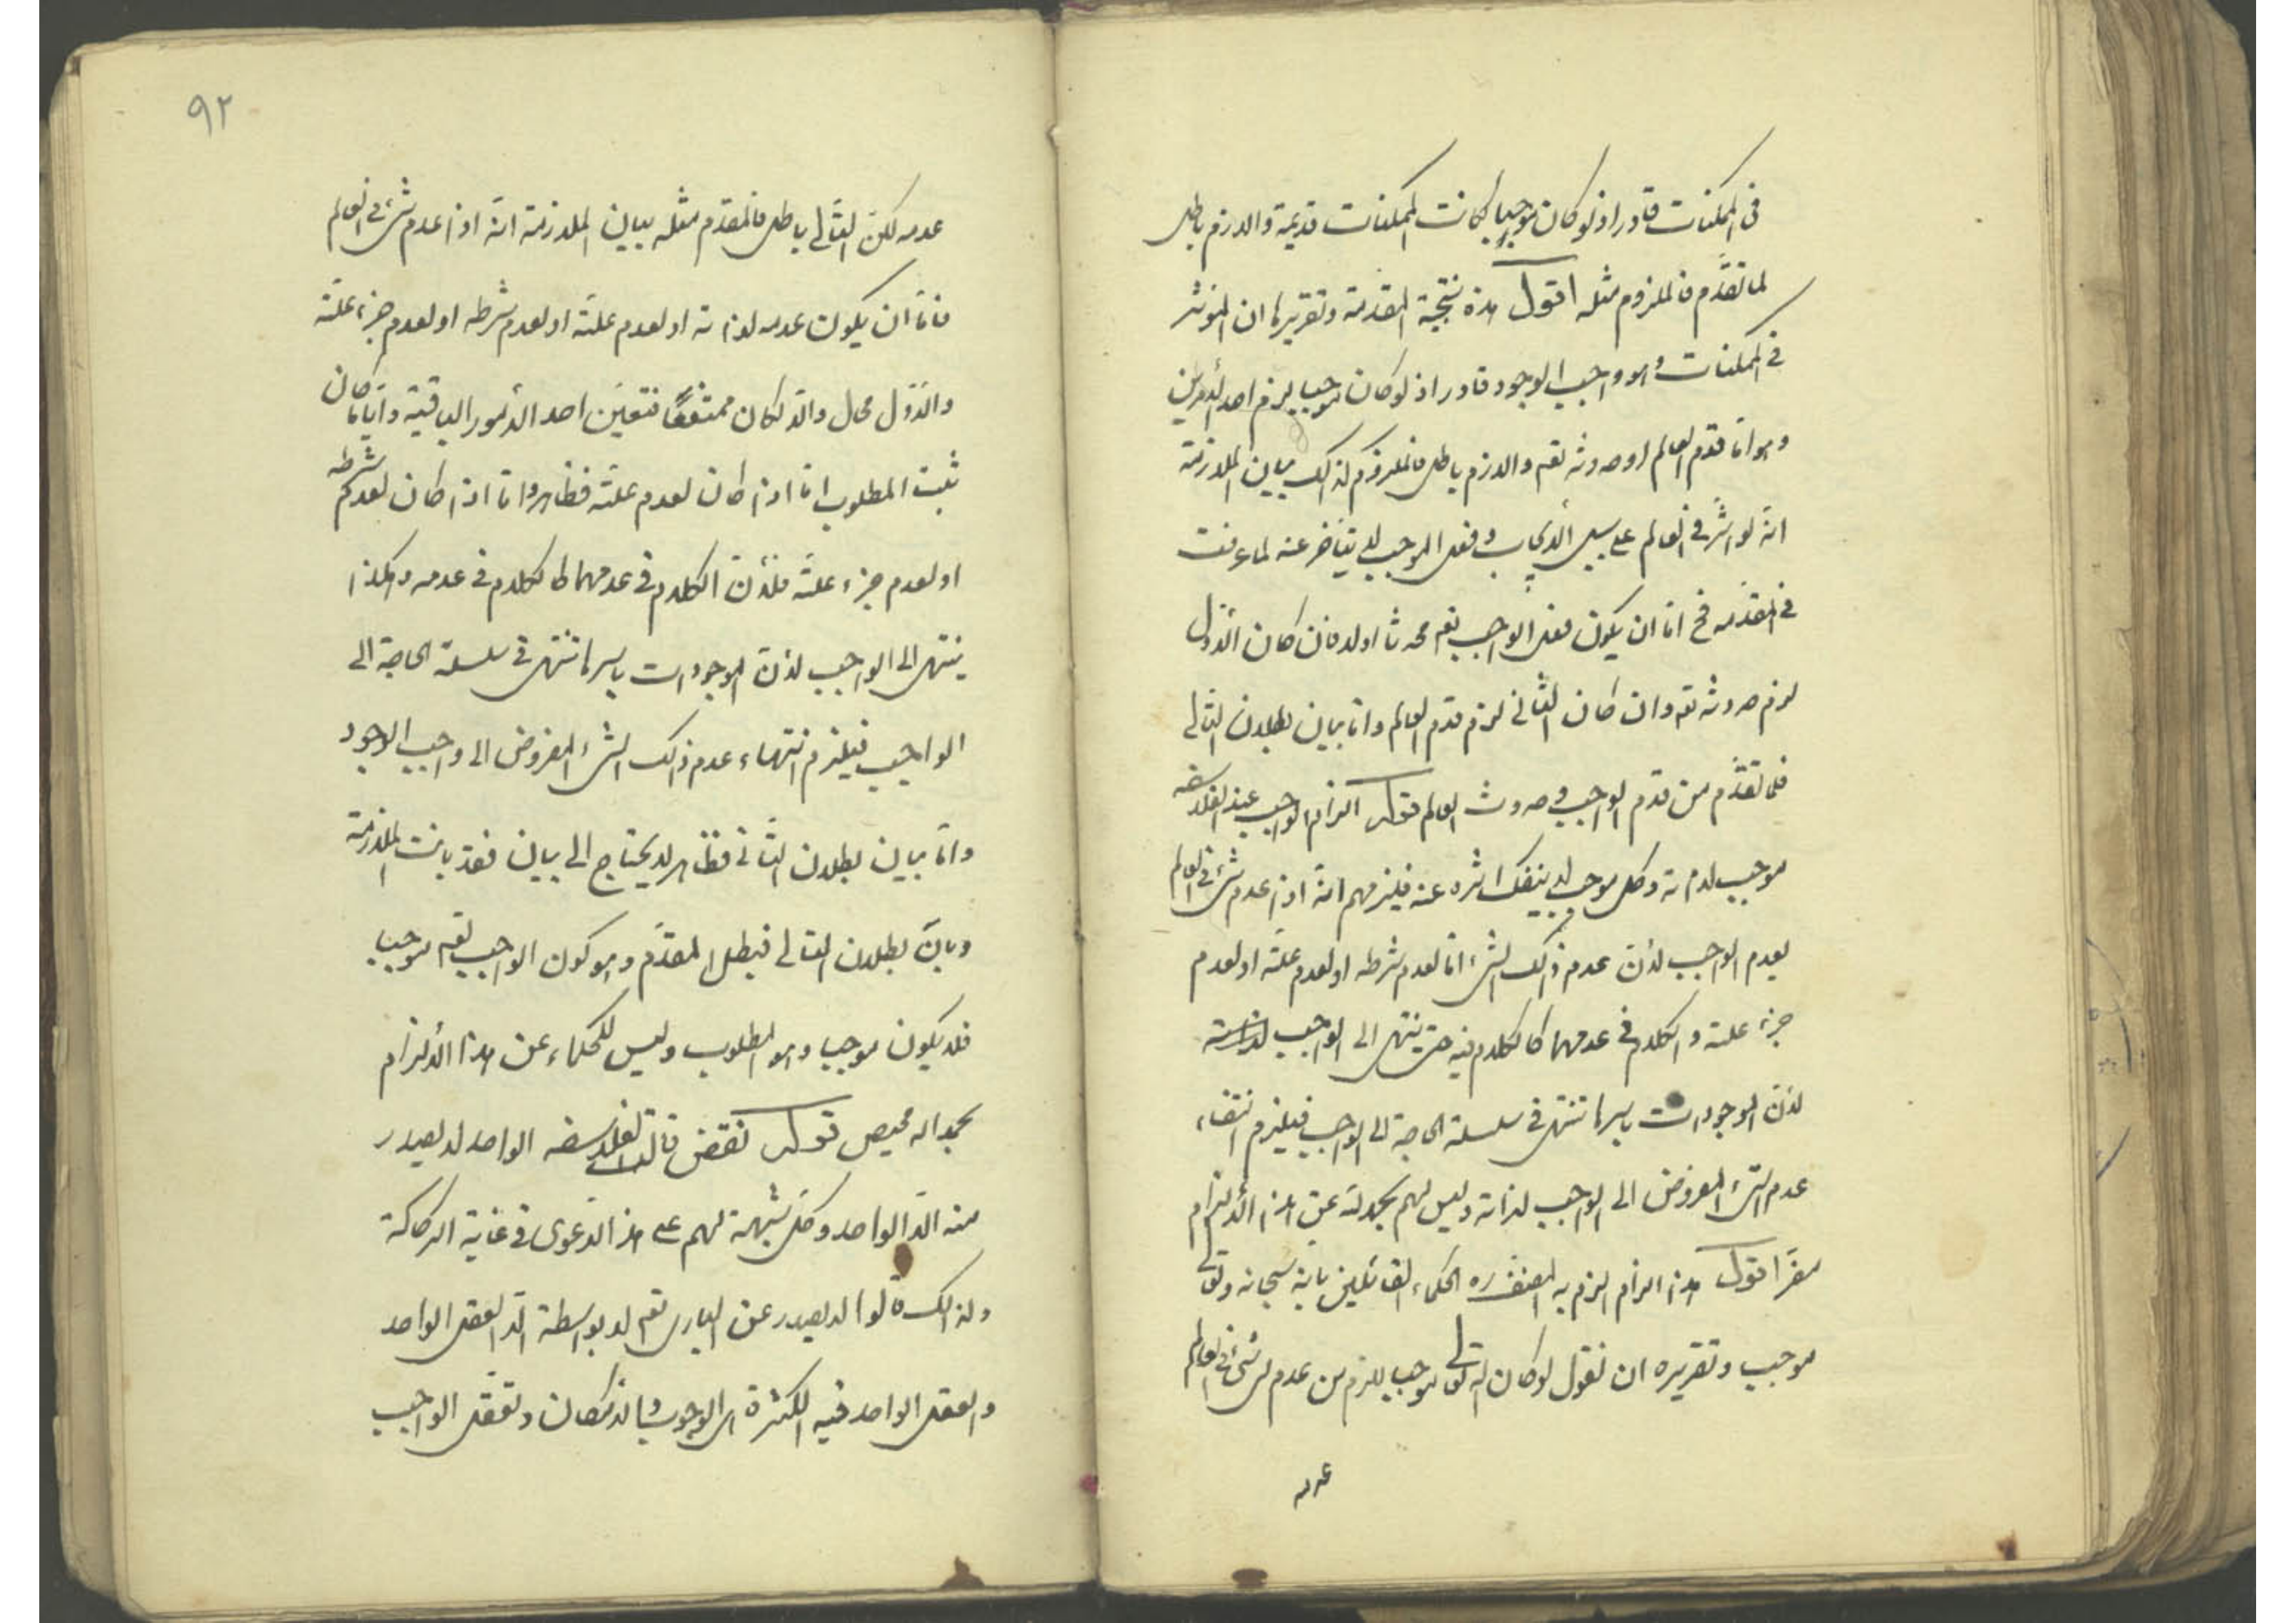 فی الممکنات قادر اذ لو کان موجبا لکانت الممکنات قدیمة واللازم باطل
لما تقدّم فالملزوم مثله اقول هذه نتیجة المقدمة وتقریرها ان المؤثر
فی الممکنات وهو واجب الوجود قادر اذ لو کان موجبا لزم احد الأمرین
وهو اما قدم العالم او حدوثه تعم واللازم باطل فالملزوم کذلک بیان الملازمة
انّه لو اثّر فی العالم علی سبیل الایجاب وفعل الموجب لا یتأخر عنه لما عرفت
فی المقدّمه فح امّا ان یکون فعل الواجب تعم محدثا اولا فان کان الأوّل
لزم حدوثه تعم وان کان الثّانی لزم قدم العالم وامّا بیان بطلان التالی
فلما تقدّم من قدم الواجب وحدوث العالم قوله الزام الواجب عند الفلاسفه
موجب لذاته وکل موجب لا ینفک اثره عنه فیلزمهم انّه اذا عدم شیء فی العالم
یعدم الواجب لأنّ عدم ذلک الشیء امّا لعدم شرطه او لعدم علّته او لعدم
جزء علته والکلام فی عدمهما کالکلام فیه حتی ینتهی الی الواجب لذاته
لأنّ الموجودات باسرها تنتهی فی سلسلة الحاجة الی الواجب فیلزم انتفاء
عدم الشیء المفروض الی الواجب لذاته ولیس لهم بحمد لله عن هذا الألزام
مفرّ اقول هذا الزام الزم به المصنف ره الحکماء القائلین بانه سبحانه وتعالی
موجب وتقریره ان نقول لو کان الله تعالی موجبا للزم من عدم شیء فی العالم
عدمه
۹۲
عدمه لکنّ التّالی باطل فالمقدّم مثله بیان الملازمة انّه اذا عدم شیء فی العالم
فامّا ان یکون عدمه لذاته او لعدم علته او لعدم شرطه او لعدم جزء علّته
والأوّل محال والّا لکان ممتنعًا فتعیّن احد الأمور الباقیة وایاما کان
ثبت المطلوب امّا اذا کان لعدم علّته فظاهر وامّا اذا کان لعدم شرطه
او لعدم جزء علّته فلأنّ الکلام فی عدمهما کالکلام فی عدمه وهکذا
ینتهی الی الواجب لأنّ الموجودات باسرها تنتهی فی سلسلة الحاجة الی
الواجب فیلزم انتهاء عدم ذلک الشیء المفروض الی واجب الوجود
وامّا بیان بطلان الثّانی فظاهر لا یحتاج الی بیان فقد بانت الملازمة
وبانّ بطلان التالی فبطل المقدّم وهو کون الواجب تعم موجبا
فلا یکون موجبا وهو المطلوب ولیس للحکماء عن هذا الألزام
بحمد الله محیص قوله نقض قالت الفلاسفه الواحد لا یصدر
منه الّا الواحد وکل شبهة لهم علی هذ الدّعوی فی غایة الرکاکة
ولذلک قالوا لا یصدر عن الباری تعم لا بواسطة الّا العقل الواحد
والعقل الواحد فیه الکثرة هی الوجوب والامکان وتعقّل الواجب